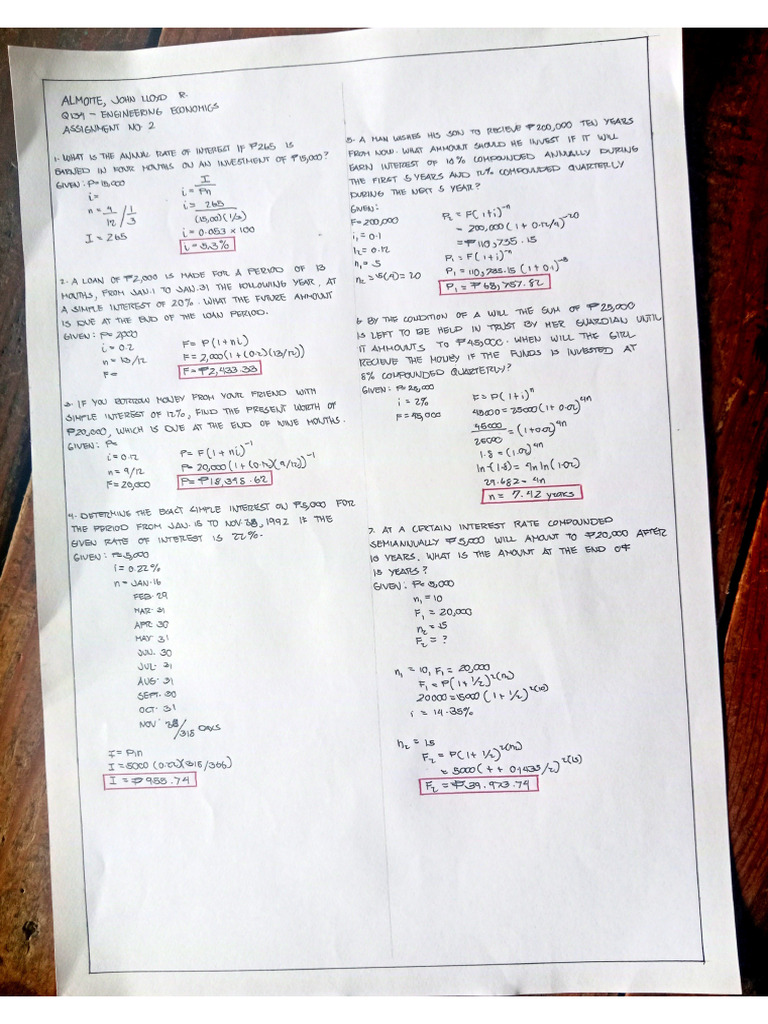 ALMOITE, JOHN LLOYD R.
Q1391 - ENGINEERING ECONOMICS
ASSIGNMENT NO. 2
1. WHAT IS THE ANNUAL RATE OF INTEREST IF ₱265 IS
EARNED IN FOUR MONTHS ON AN INVESTMENT OF ₱15,000?
GIVEN: P= 15,000
i=
n = 4/12 / 1/3
I = 265
i = I/Pn
i = 265/(15,00)(1/3)
i = 0.053 x 100
i = 5.3%
2. A LOAN OF ₱2,000 IS MADE FOR A PERIOD OF 13
MONTHS, FROM JAN.1 TO JAN.31 THE FOLLOWING YEAR, AT
A SIMPLE INTEREST OF 20%. WHAT THE FUTURE AMOUNT
IS DUE AT THE END OF THE LOAN PERIOD.
GIVEN: P= 2000
i = 0.2
n = 13/12
F=
F= P(1+ni)
F= 2,000(1+(0.2)(13/12))
F= ₱2,433.33
3. IF YOU BORROW MONEY FROM YOUR FRIEND WITH
SIMPLE INTEREST OF 12%, FIND THE PRESENT WORTH OF
₱20,000, WHICH IS DUE AT THE END OF NINE MONTHS.
GIVEN: P=
i = 0.12
n = 9/12
F= 20,000
P= F(1+ni)⁻¹
P= 20,000(1+(0.12)(9/12))⁻¹
P= ₱18,348.62
4. DETERMINE THE EXACT SIMPLE INTEREST ON ₱5,000 FOR
THE PERIOD FROM JAN. 15 TO NOV. 28, 1992 IF THE
GIVEN RATE OF INTEREST IS 22%.
GIVEN: P=5,000
i = 0.22%
n = JAN. 16
FEB. 29
MAR. 31
APR. 30
MAY 31
JUN. 30
JUL. 31
AUG. 31
SEPT. 30
OCT. 31
NOV. 28/318 DAYS
I = Pin
I = 5000 (0.22)(318/366)
I = ₱955.74
5. A MAN WISHES HIS SON TO RECIEVE ₱200,000 TEN YEARS
FROM NOW. WHAT AMMOUNT SHOULD HE INVEST IF IT WILL
EARN INTEREST OF 10% COMPOUNDED ANNUALLY DURING
THE FIRST 5 YEARS AND 12% COMPOUNDED QUARTERLY
DURING THE NEXT 5 YEAR?
GIVEN:
F= 200,000
i₁ = 0.1
i₂ = 0.12
n₁ = 5
n₂ = 5(4) = 20
P₂ = F(1+i)⁻ⁿ
= 200,000(1+0.12/4)⁻²⁰
= ₱110,735.15
P₁ = F(1+i)⁻ⁿ
P₁ = 110,735.15 (1+0.1)⁻⁵
P₁ = ₱68,757.82
6. BY THE CONDITION OF A WILL THE SUM OF ₱25,000
IS LEFT TO BE HELD IN TRUST BY HER GUARDIAN UNTIL
IT AMMOUNTS TO ₱45,000. WHEN WILL THE GIRL
RECIEVE THE MONEY IF THE FUNDS IS INVESTED AT
8% COMPOUNDED QUARTERLY?
GIVEN: P= 25,000
i = 2%
F= 45,000
F= P(1+i)ⁿ
45000 = 25000(1+0.02)⁴ⁿ
45000/25000 = (1+0.02)⁴ⁿ
1.8 = (1.02)⁴ⁿ
ln(1.8) = 4n ln(1.02)
29.682 = 4n
n = 7.42 years
7. AT A CERTAIN INTEREST RATE COMPOUNDED
SEMIANNUALLY ₱5,000 WILL AMOUNT TO ₱20,000 AFTER
10 YEARS. WHAT IS THE AMOUNT AT THE END OF
15 YEARS?
GIVEN: P= 5,000
n₁ = 10
F₁ = 20,000
n₂ = 15
F₂ = ?
n₁ = 10, F₁ = 20,000
F₁ = P(1+1/2)²⁽ⁿ²⁾
20000 = 15000 (1+1/2)²⁽¹⁰⁾
i = 14.35%
n₂ = 15
F₂ = P(1+1/2)²⁽ⁿ²⁾
= 5000(++ 0.1435/2)²⁽¹⁵⁾
F₂ = ₱39.973.74